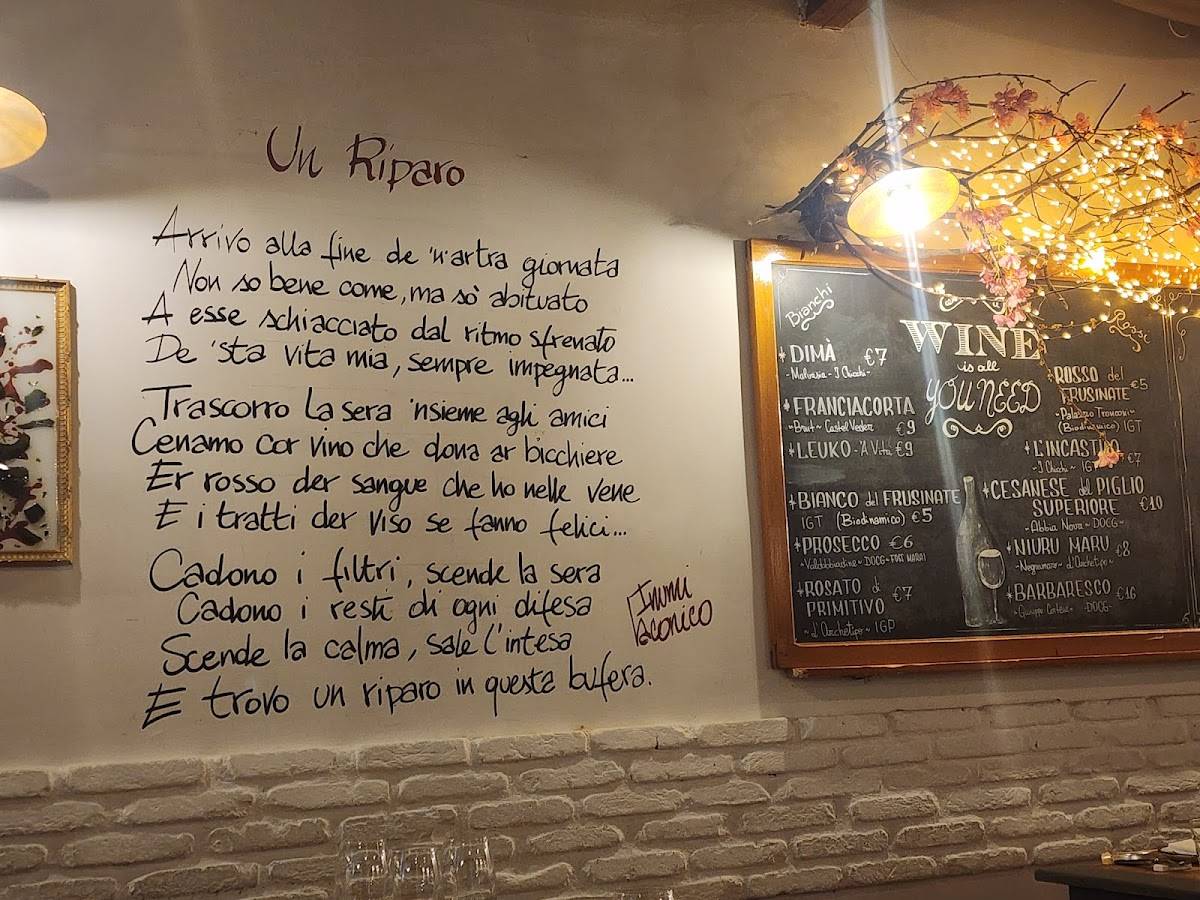 Un Riparo
Arrivo alla fine de 'n'artra giornata
Non so bene come, ma sò abituato
A esse schiacciato dal ritmo sfrenato
De 'sta vita mia, sempre impegnata...
Trascorro la sera 'nsieme agli amici
Cenamo cor vino che dona ar bicchiere
Er rosso der sangue che ho nelle vene
E i tratti der viso se fanno felici...
Cadono i filtri, scende la sera
Cadono i resti di ogni difesa
Scende la calma, sale l'intesa
E trovo un riparo in questa bufera.
Immi
Bianchi
DIMÀ €7
-Malvasia - I Chicchi-
FRANCIACORTA
~Brut~ Castel Veder €9
LEUKO - A Vita €9
BIANCO del FRUSINATE
IGT (Biodinamico) €5
PROSECCO €6
~Valdobbiadine~ DOCG~
ROSATO di
PRIMITIVO €7
~ d'Archetipo~ IGP
WINE
is all
YOU NEED
Rossi
ROSSO del
FRUSINATE €5
~Palazzo Tronconi~
(Biodinamico) IGT
L'INCASTRO
~I Chicchi~ IGT €7
CESANESE del PIGLIO
SUPERIORE €10
~Abbia Nova~ DOCG~
NIURU MARU €8
~Negroamaro~ d'Archetipo~
BARBARESCO €16
~Giuseppe Cortese~ DOCG~